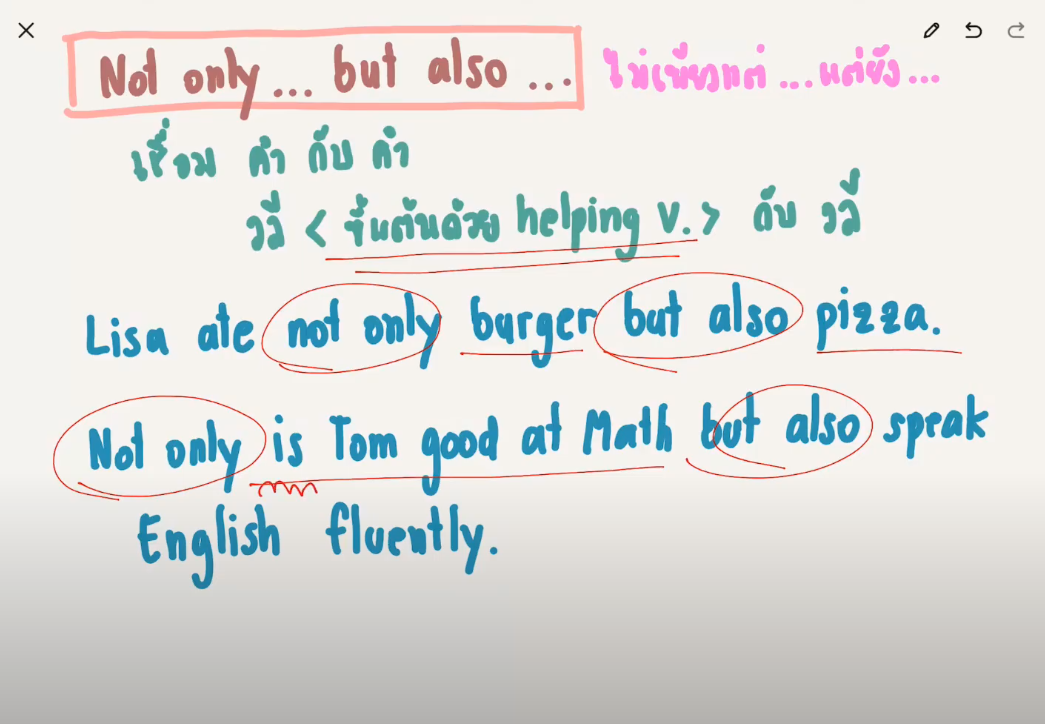 Not only... but also... ไม่เพียงแต่ ... แต่ยัง ...
เชื่อม คำ กับ คำ
วลี < ขึ้นต้นด้วย helping v. > กับ วลี
Lisa ate not only burger but also pizza.
Not only is Tom good at Math but also speak
English fluently.